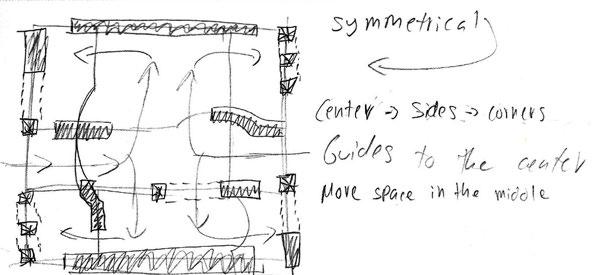 symmetrical
center → sides → corners
Guides to the center
Move space in the middle